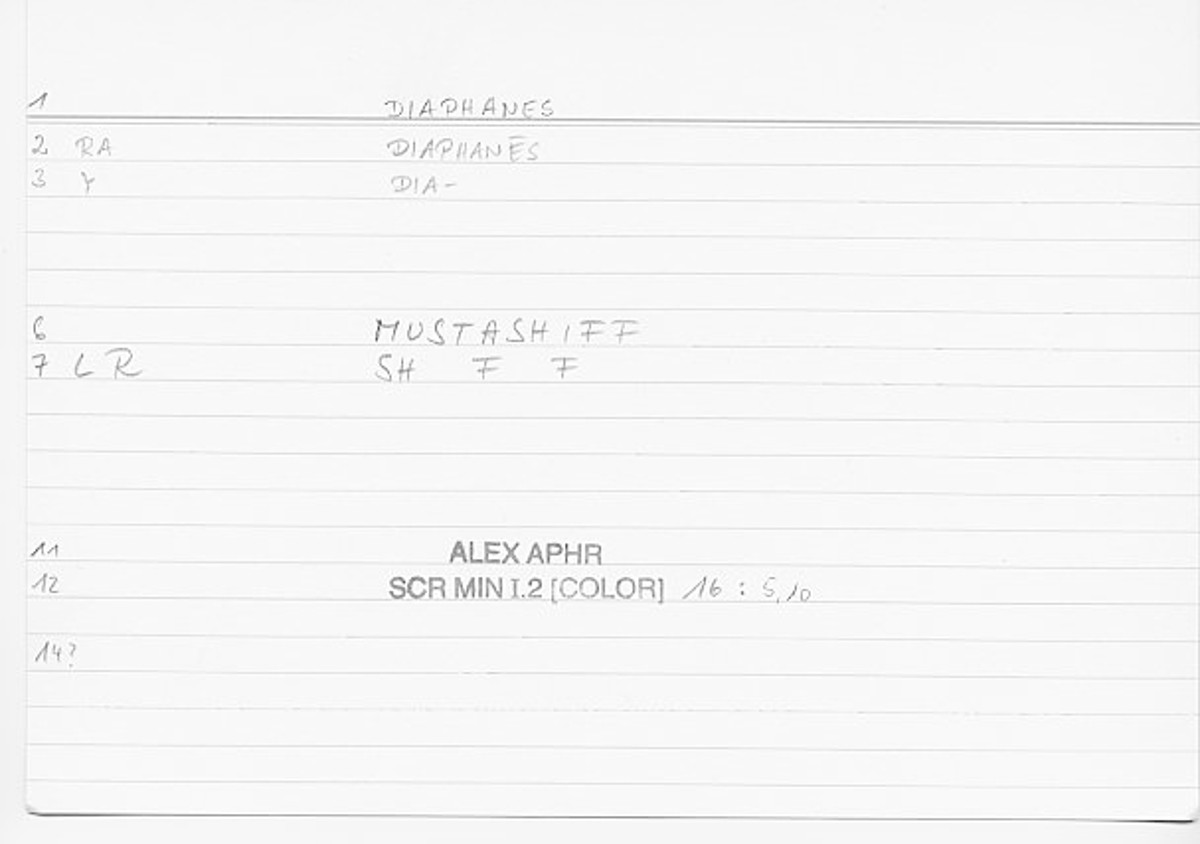 1 DIAPHANES
2 RA DIAPHANĒS
3 Y DIA-
6 MUSTASHIFF
7 LR SH F F
11 ALEX APHR
12 SCR MIN I.2 [COLOR] 16 : 5,10
14?